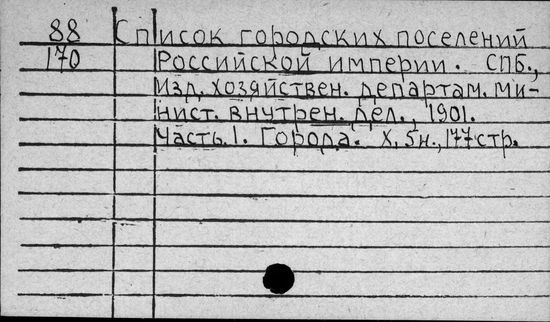 88 Список городских поселений
170 Российской империи. СПб.,
Изд. хозяйствен. департам. ми-
нист. внутрен. дел., 1901.
Часть.1. Города. X, 5н., 177стр.